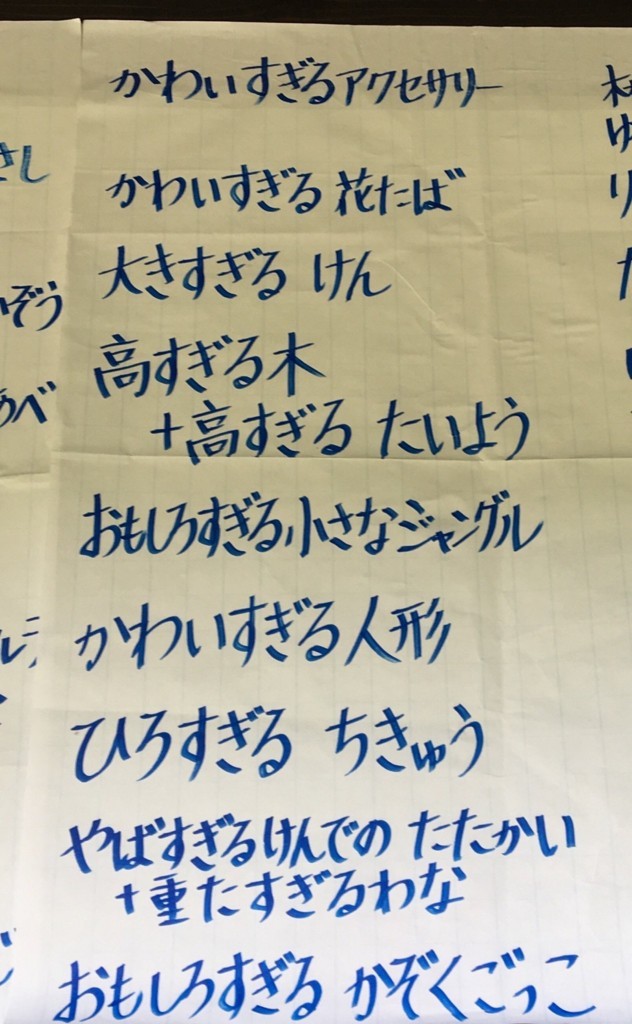 かわいすぎるアクセサリー
かわいすぎる 花たば
大きすぎる けん
高すぎる木
+高すぎる たいよう
おもしろすぎる小さなジャングル
かわいすぎる人形
ひろすぎる ちきゅう
やばすぎるけんでの たたかい
+重たすぎるわな
おもしろすぎる かぞくごっこ